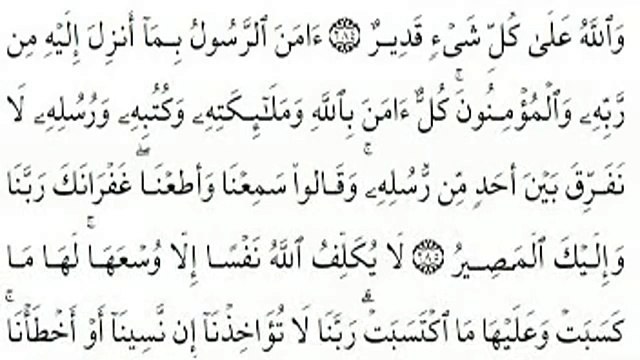 وَٱللَّهُ عَلَىٰ كُلِّ شَىْءٍ قَدِيرٌ ٢٨٤ ءَامَنَ ٱلرَّسُولُ بِمَآ أُنزِلَ إِلَيْهِ مِن
رَّبِّهِۦ وَٱلْمُؤْمِنُونَ ۚ كُلٌّ ءَامَنَ بِٱللَّهِ وَمَلَـٰٓئِكَتِهِۦ وَكُتُبِهِۦ وَرُسُلِهِۦ لَا
نُفَرِّقُ بَيْنَ أَحَدٍ مِّن رُّسُلِهِۦ ۚ وَقَالُوا۟ سَمِعْنَا وَأَطَعْنَا ۖ غُفْرَانَكَ رَبَّنَا
وَإِلَيْكَ ٱلْمَصِيرُ ٢٨٥ لَا يُكَلِّفُ ٱللَّهُ نَفْسًا إِلَّا وُسْعَهَا ۚ لَهَا مَا
كَسَبَتْ وَعَلَيْهَا مَا ٱكْتَسَبَتْ ۗ رَبَّنَا لَا تُؤَاخِذْنَآ إِن نَّسِينَآ أَوْ أَخْطَأْنَا ۚ